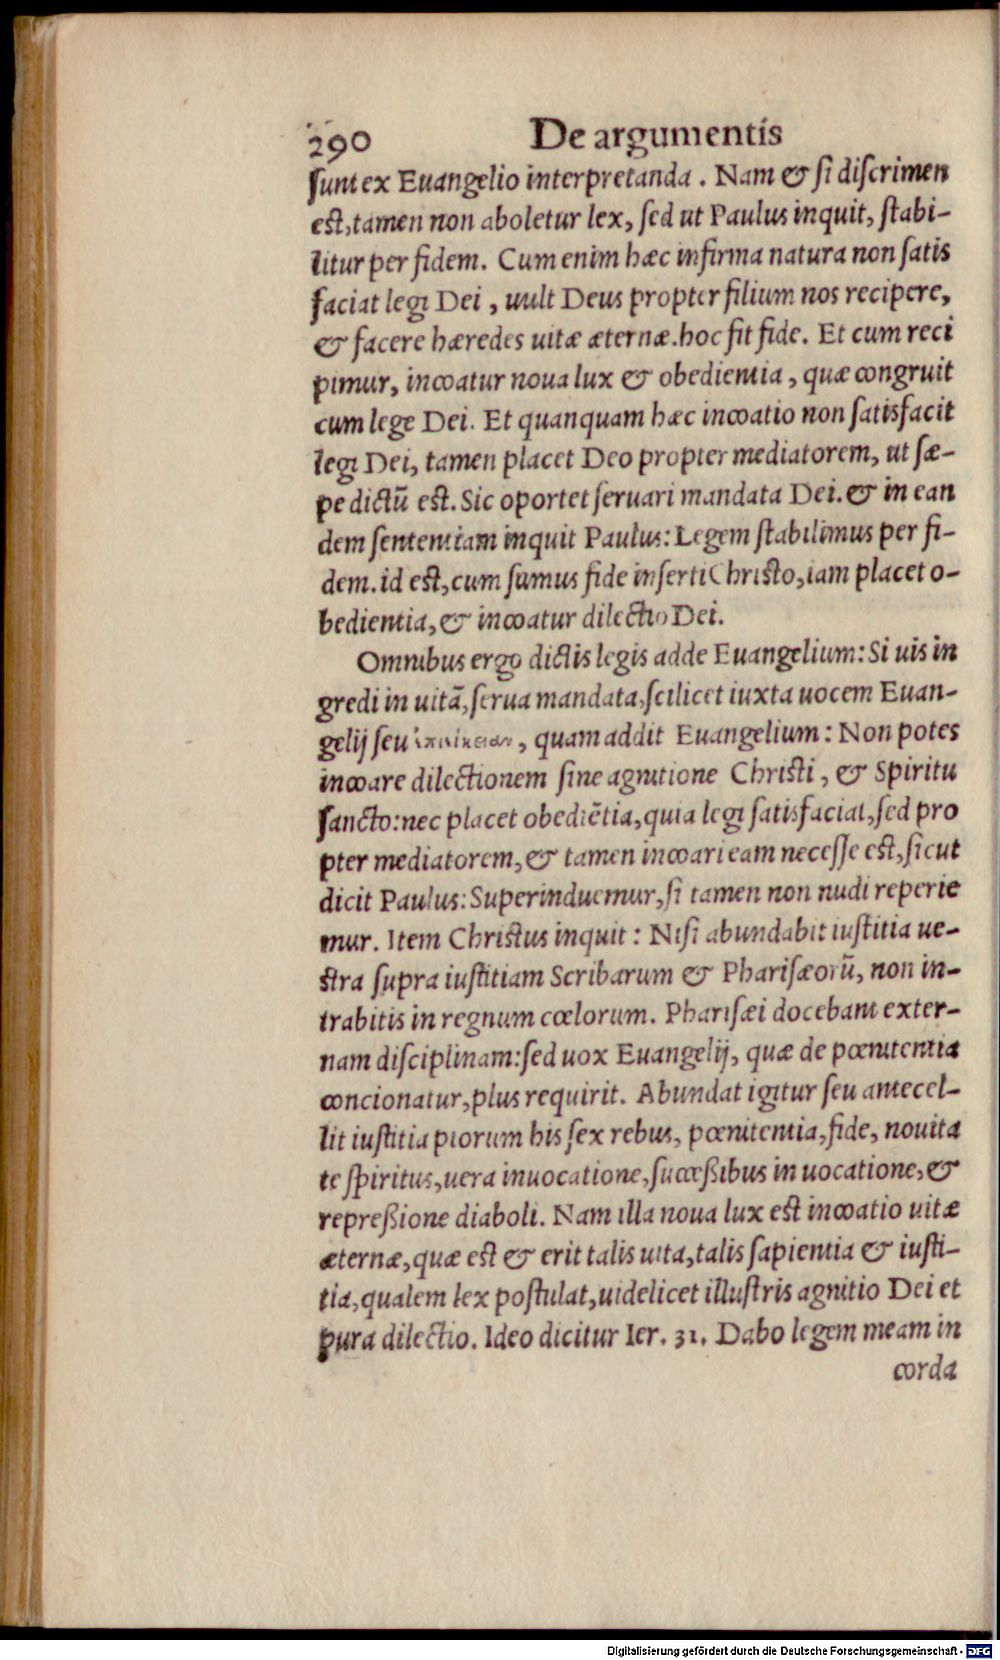 290 De argumentis
ſunt ex Euangelio interpretanda. Nam & ſi diſcrimen
est, tamen non aboletur lex, ſed ut Paulus inquit, ſtabi-
litur per fidem. Cum enim hæc infirma natura non ſatis
faciat legi Dei, uult Deus propter filium nos recipere,
& facere hæredes uitæ æternæ. hoc fit fide. Et cum reci
pimur, inchoatur noua lux & obedientia, quæ congruit
cum lege Dei. Et quanquam hæc inchoatio non ſatisfacit
legi Dei, tamen placet Deo propter mediatorem, ut ſæ-
pe dictũ est. Sic oportet ſeruari mandata Dei. & in ean
dem ſententiam inquit Paulus: Legem ſtabilimus per fi-
dem. id est, cum ſumus fide inſerti Christo, iam placet o-
bedientia, & inchoatur dilectio Dei.
Omnibus ergo dictis legis adde Euangelium: Si uis in
gredi in uitã, ſerua mandata, ſcilicet iuxta uocem Euan-
gelij ſeu ἐπιείκειαν, quam addit Euangelium: Non potes
inchoare dilectionem ſine agnitione Christi, & Spiritu
ſancto: nec placet obediẽtia, quia legi ſatisfaciat, ſed pro
pter mediatorem, & tamen inchoari eam neceſſe est, ſicut
dicit Paulus: Superinduemur, ſi tamen non nudi reperie
mur. Item Christus inquit: Niſi abundabit iuſtitia ue-
stra ſupra iuſtitiam Scribarum & Phariſæorũ, non in-
trabitis in regnum cœlorum. Phariſæi docebant exter-
nam diſciplinam: ſed uox Euangelij, quæ de pœnitentia
concionatur, plus requirit. Abundat igitur ſeu antecel-
lit iuſtitia piorum his ſex rebus, pœnitentia, fide, nouita
te ſpiritus, uera inuocatione, ſucceßibus in uocatione, &
repreßione diaboli. Nam illa noua lux est inchoatio uitæ
æternæ, quæ est & erit talis uita, talis ſapientia & iuſti-
tia, qualem lex poſtulat, uidelicet illuſtris agnitio Dei et
pura dilectio. Ideo dicitur Ier. 31. Dabo legem meam in
corda
Digitalisierung gefördert durch die Deutsche Forschungsgemeinschaft - DFG